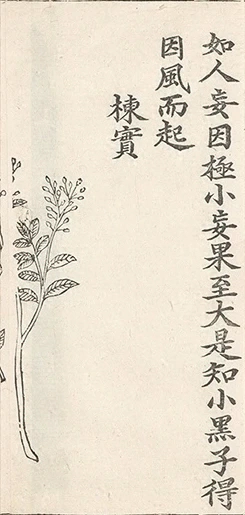 如人妄因極小妄果至大是知小黑子得
因風而起
楝實